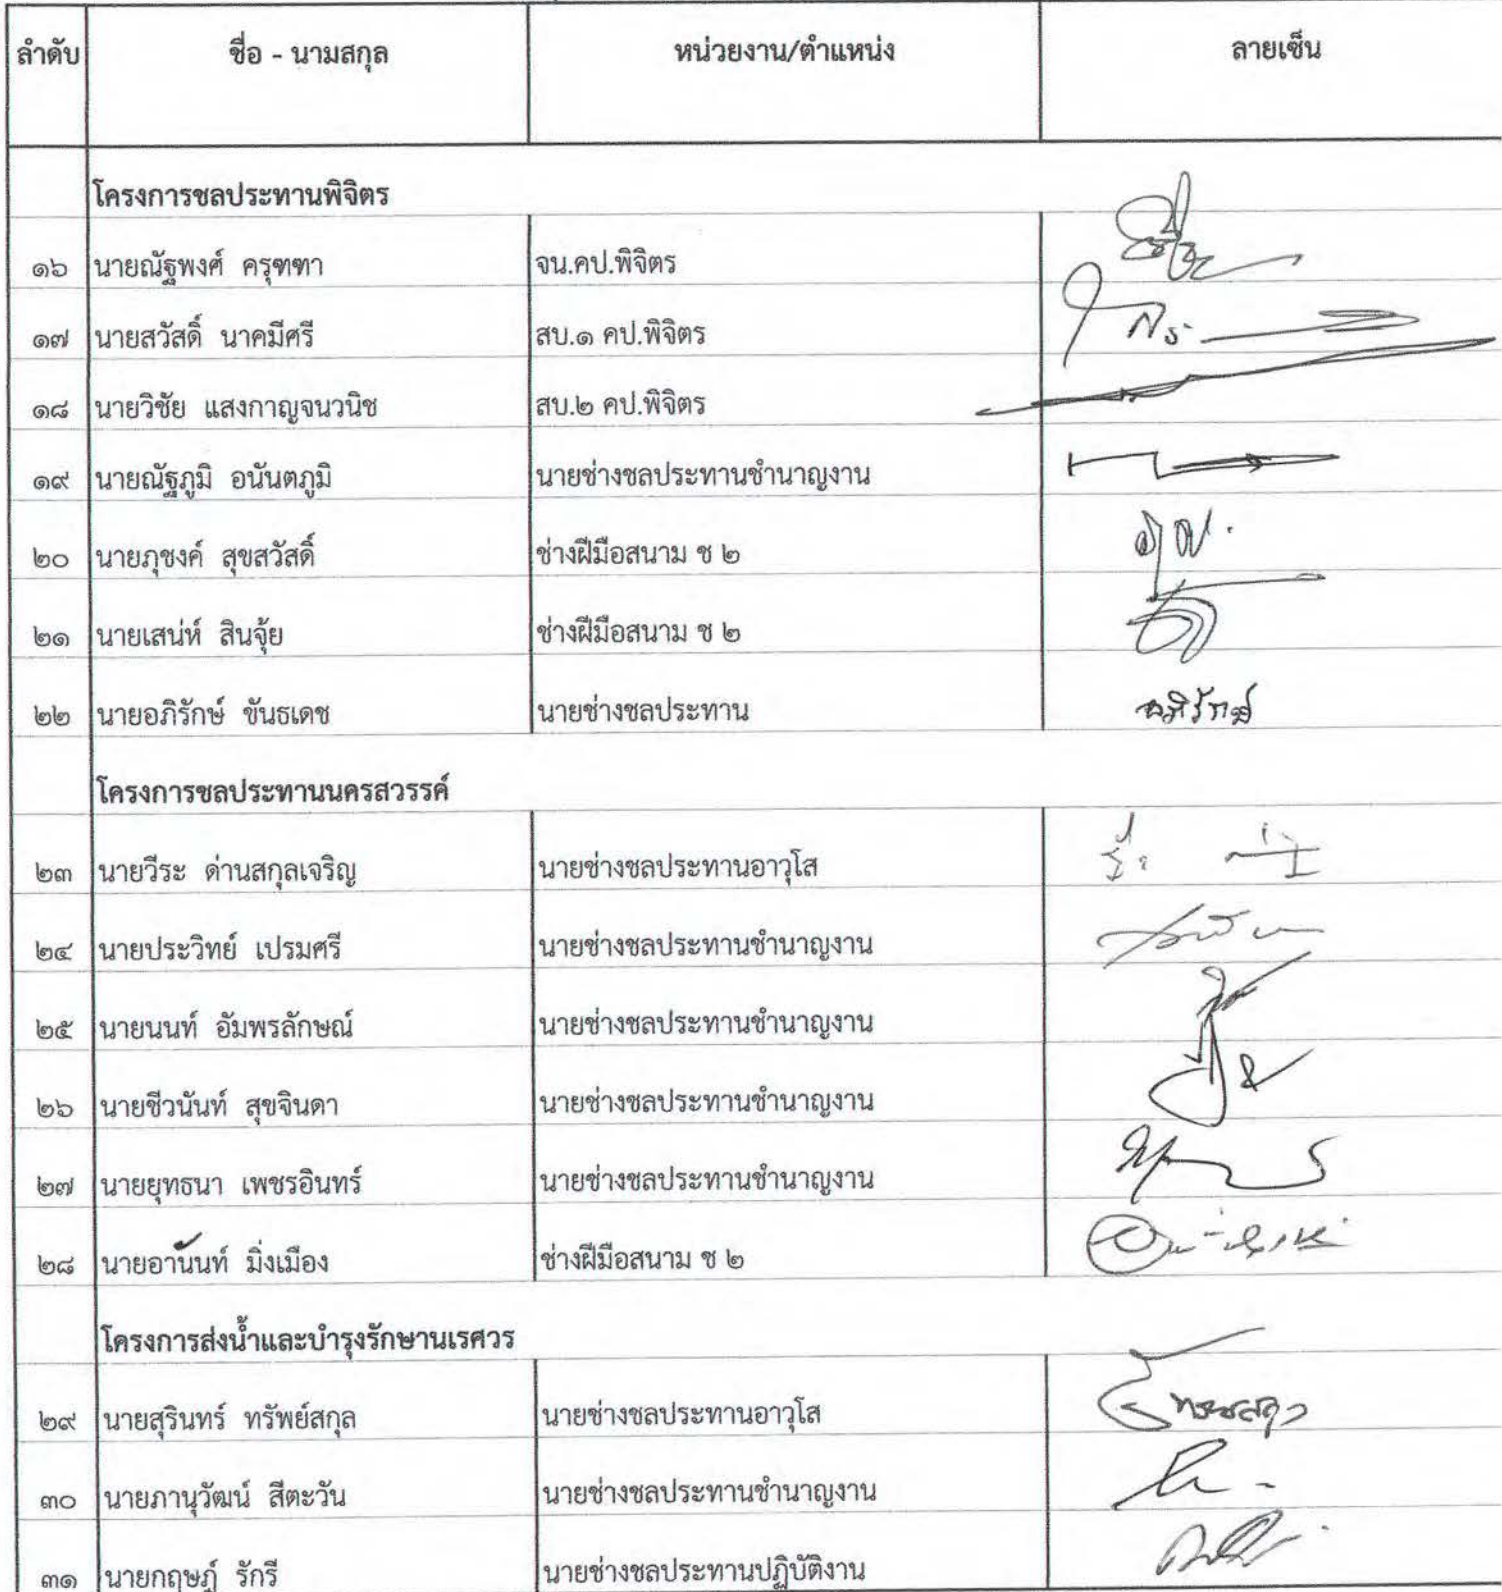 ลำดับ ชื่อ - นามสกุล หน่วยงาน/ตำแหน่ง ลายเซ็น
โครงการชลประทานพิจิตร
๑๖ นายณัฐพงศ์ ครุฑฑา จน.คป.พิจิตร
๑๗ นายสวัสดิ์ นาคมีศรี สบ.๑ คป.พิจิตร
๑๘ นายวิชัย แสงกาญจนวนิช สบ.๒ คป.พิจิตร
๑๙ นายณัฐภูมิ อนันตภูมิ นายช่างชลประทานชำนาญงาน
๒๐ นายภุชงค์ สุขสวัสดิ์ ช่างฝีมือสนาม ช ๒
๒๑ นายเสน่ห์ สินจุ้ย ช่างฝีมือสนาม ช ๒
๒๒ นายอภิรักษ์ ขันธเดช นายช่างชลประทาน อภิรักษ์
โครงการชลประทานนครสวรรค์
๒๓ นายวีระ ด่านสกุลเจริญ นายช่างชลประทานอาวุโส
๒๔ นายประวิทย์ เปรมศรี นายช่างชลประทานชำนาญงาน
๒๕ นายนนท์ อัมพรลักษณ์ นายช่างชลประทานชำนาญงาน
๒๖ นายชีวนันท์ สุขจินดา นายช่างชลประทานชำนาญงาน
๒๗ นายยุทธนา เพชรอินทร์ นายช่างชลประทานชำนาญงาน
๒๘ นายอานันท์ มิ่งเมือง ช่างฝีมือสนาม ช ๒
โครงการส่งน้ำและบำรุงรักษานเรศวร
๒๙ นายสุรินทร์ ทรัพย์สกุล นายช่างชลประทานอาวุโส
๓๐ นายภานุวัฒน์ สีตะวัน นายช่างชลประทานชำนาญงาน
๓๑ นายกฤษฎ์ รักรี นายช่างชลประทานปฏิบัติงาน